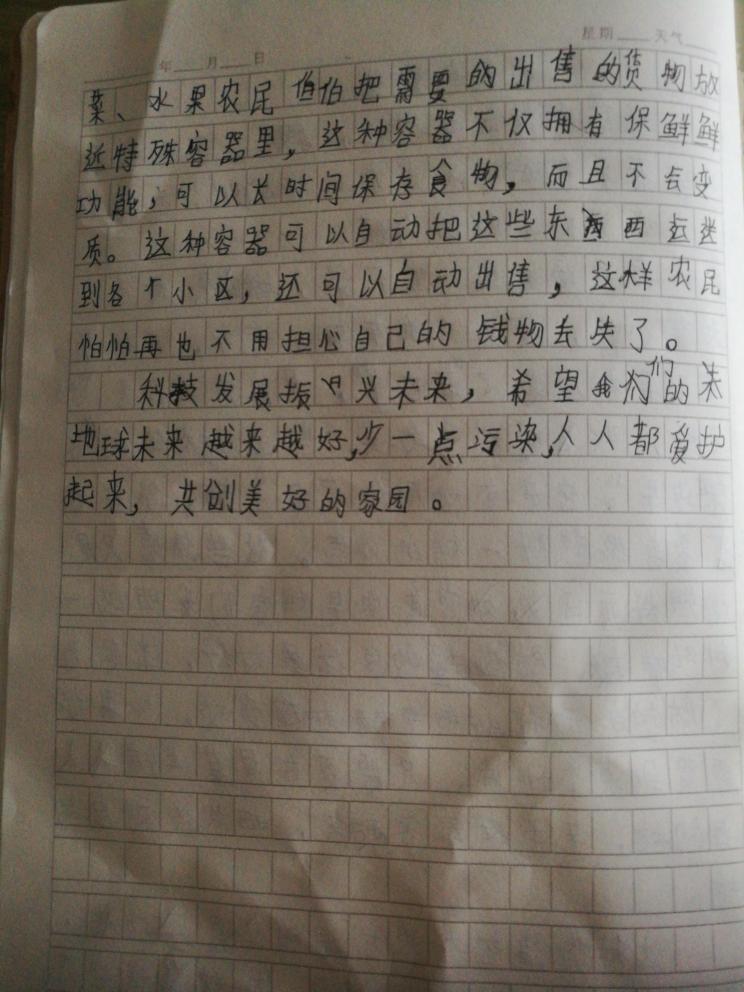 星期 天气
年 月 日
菜、水果农民伯伯把需要的出售的货物放
近特殊容器里，这种容器不仅拥有保鲜鲜
功能，可以长时间保存食物，而且不会变
质。这种容器可以自动把这些东西运送
到各个小区，还可以自动出售，这样农民
怕怕再也不用担心自己的钱物丢失了。
科技发展振兴未来，希望我们的
地球未来越来越好，少一点污染，人人都爱护
起来，共创美好的家园。